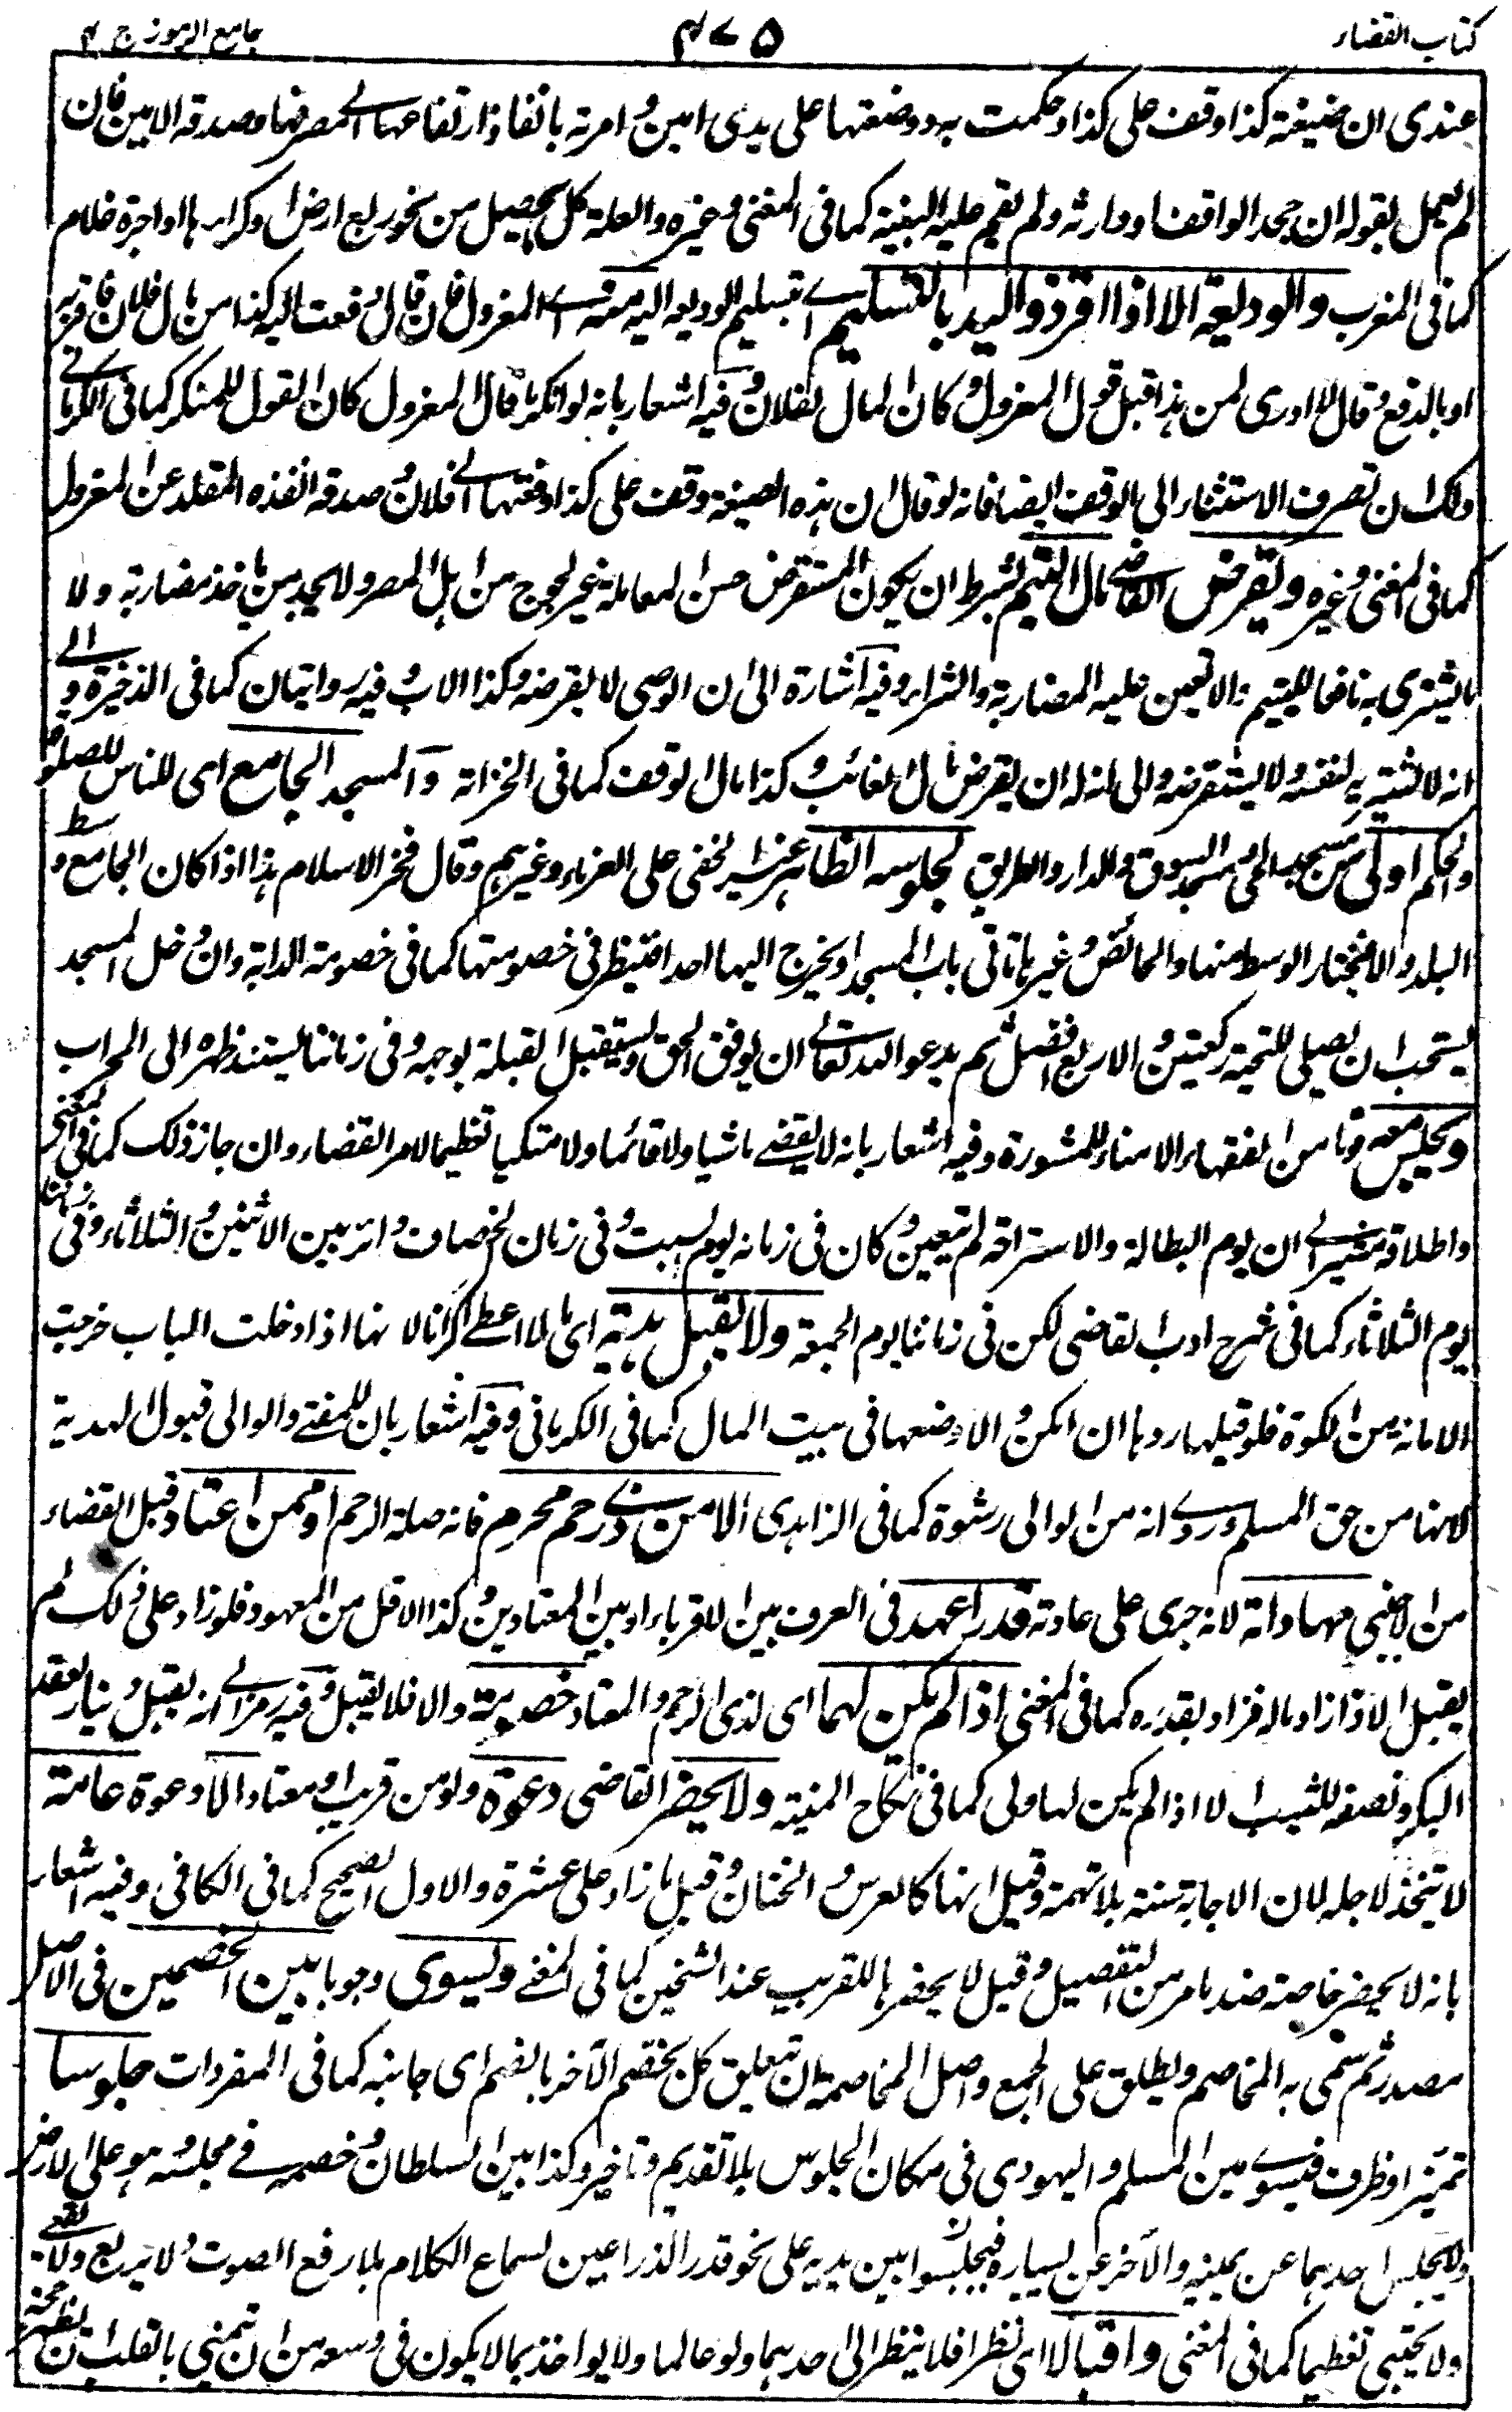 كتاب القضاء ٤٧٥ جامع الرموز ج ٢
عندى ان ضيعة كذا وقف على كذا وحكمت به ووضعتها على يدى امين وامرته بانفاذ ارتفاعها الى مصرفها وصدقه الامين فان
لم يعمل بقوله ان جحد الواقف او وارثه ولم تقم عليه البينة كما فى المغنى وغيره والغلة كل ما يحصل من نحو ريع ارض او كرائها او اجرة غلام
كما فى المغرب والوديعة الا اذا اقر ذو اليد بالتسليم اى بتسليم الوديعة اليه منه اى المعزول فان قال دفعت اليه كذا من مال فلان فاقر به
او بالدفع وقال لا ادرى لمن هذا قبل قول المعزول وكان المال لفلان وفيه اشعار بانه لو انكر ما قال المعزول كان القول للمنكر كما فى الكرمانى
ولك ان تصرف الاستثناء الى الوقف ايضا فانه لو قال ان هذه الضيعة وقف على كذا دفعتها الى فلان وصدقه انفذه المقلد عن المعزول
كما فى المغنى وغيره ويقرض القاضى مال اليتيم بشرط ان يكون المستقرض حسن المعاملة غير لجوج من اهل المصر ولا يجد من ياخذ مضاربة ولا
ما يشترى به نافعا لليتيم والا تعين عليه المضاربة والشراء وفيه اشارة الى ان الوصى لا يقرضه وكذا الاب وفيه روايتان كما فى الذخيرة والى
انه لا يشتريه لنفسه ولا يستقرضه والى انه له ان يقرض مال الغائب وكذا مال الوقف كما فى الخزانة والمسجد الجامع اى للناس للصلوة
والحكم اولى من مسجد الحى ومسجد السوق والدار والطريق لجلوسه الظاهر غير خفى على الغرباء وغيرهم وقال فخر الاسلام هذا اذا كان الجامع وسط
البلد والا فيختار الوسط منها والحائض وغيرها تاتى باب المسجد او يخرج اليها احدا فينظر فى خصومتها كما فى خصومة الدابة وان دخل المسجد
يستحب ان يصلى للتحية ركعتين والاربع افضل ثم يدعو الله تعالى ان يوفق الحق ويستقبل القبلة بوجهه وفى زماننا يستند ظهره الى المحراب
ويجلس معه قوما من الفقهاء الامناء للمشورة وفيه اشعار بانه لا يقضى ماشيا ولا قائما ولا متكيا تعظيما لامر القضاء وان جاز ذلك كما فى المغنى
واطلاقه مشير الى ان يوم البطالة والاستراحة لم يتعين وكان فى زمانه يوم السبت وفى زمان الخصاف دائر بين الاثنين والثلاثاء وفى زماننا
يوم الثلاثاء كما فى شرح ادب القاضى لكن فى زماننا يوم الجمعة ولا يقبل هدية اى مالا اعطى اكراما لانها اذا دخلت الباب خرجت
الامانة من الكوة فلو قبلها ردها ان امكن والا وضعها فى بيت المال كما فى الكرمانى وفيه اشعار بان للمفتى والوالى قبول الهدية
لانها من حق المسلم وروى انه من الوالى رشوة كما فى الزاهدى الا من ذى رحم محرم فانه صلة الرحم او ممن اعتاد قبل القضاء
من الاجنبى مهاداته لانه جرى على عادته قدرا عهد فى العرف بين الاقرباء او بين المعتادين وكذا الاقل من المعهود فلو زاد على ذلك لم
يقبل الا اذا زاد ماله فزاد بقدره كما فى المغنى اذا لم يكن لهما اى لذى الرحم والمعتاد خصومة والا فلا يقبل وفيه رمز الى انه يقبل دينار لعقد
البكر ونصفه للثيب الا اذا لم يكن لها ولى كما فى نكاح المنية ولا يحضر القاضى دعوة ولو من قريب او معتاد الا دعوة عامة
لا يتخذ لاجله لان الاجابة سنة بلا تهمة وقيل انها كالعرس والختان وقيل ما زاد على عشرة والاول الصحيح كما فى الكافى وفيه اشعار
بانه لا يحضر خاصة ضد ما مر من التفصيل وقيل لا يحضرها للقريب عند الشيخين كما فى المغنى ويسوى وجوبا بين الخصمين فى الاصل
مصدر ثم سمى به المخاصم ويطلق على الجمع واصل المخاصمة ان يتعلق كل بخصم الآخر بالضم اى جانبه كما فى المفردات جلوسا
تمييز او ظرف فيسوى بين المسلم واليهودى فى مكان الجلوس بلا تقديم وتاخير وكذا بين السلطان وخصمه فى مجلسه وهو على الارض
ولا يجلس احدهما عن يمينه والآخر عن يساره فيجلسوا بين يديه على نحو قدر الذراعين لسماع الكلام بلا رفع الصوت ولا يربع ولا يقعى
ولا يحتبى تعظيما كما فى المغنى واقبالا اى نظرا فلا ينظر الى احدهما ولو عالما ولا يواخذ بما لا يكون فى وسعه من ان يتمنى بالقلب ان يظهر